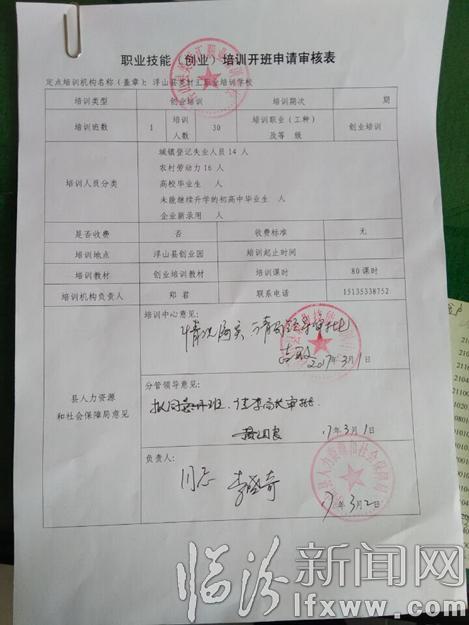 职业技能（创业）培训开班申请审核表
定点培训机构名称（盖章）：浮山县 职业培训学校
培训类型 创业培训 培训期次 期
培训班数 1 培训人数 30 培训职业（工种）及等 级 创业培训
培训人员分类
城镇登记失业人员 14 人
农村劳动力 16 人
高校毕业生 人
未能继续升学的初高中毕业生 人
企业新录用 人
是否收费 否 收费标准 无
培训地点 浮山县创业园 培训起止时间
培训教材 创业培训教材 培训课时 80 课时
培训机构负责人 郑君 联系电话 15135338752
县人力资源和社会保障局意见
培训中心意见：
情况属实 请局领导审批
2017年3月1日
分管领导意见：
拟同意开班，请李局长审批。
17年3月1日
负责人：
同意
17年3月2日
临汾新闻网
lfxww.com